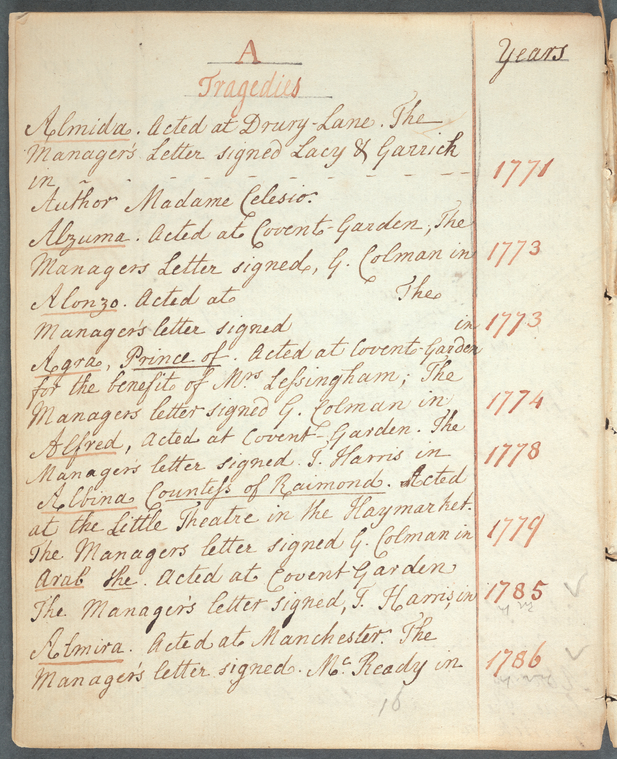 A
Years
Tragedies
Almida. Acted at Drury-Lane. The
Manager's Letter signed Lacy & Garrick
in 1771
Author Madame Celesio.
Alzuma. Acted at Covent-Garden, The
Managers Letter signed, G. Colman in 1773
Alonzo. Acted at The
Manager's letter signed in 1773
Agra, Prince of. Acted at Covent-Garden
for the benefit of Mrs Lessingham; The
Managers letter signed G. Colman in 1774
Alfred, Acted at Covent-Garden. The
Manager's letter signed. T. Harris in 1778
Albina Countess of Raimond. Acted
at the Little Theatre in the Haymarket.
The Managers letter signed G. Colman in 1779
Arab the. Acted at Covent Garden
The Manager's letter signed, T. Harris, in 1785
Almira. Acted at Manchester. The
Manager's letter signed. Mc. Ready in 1786
16